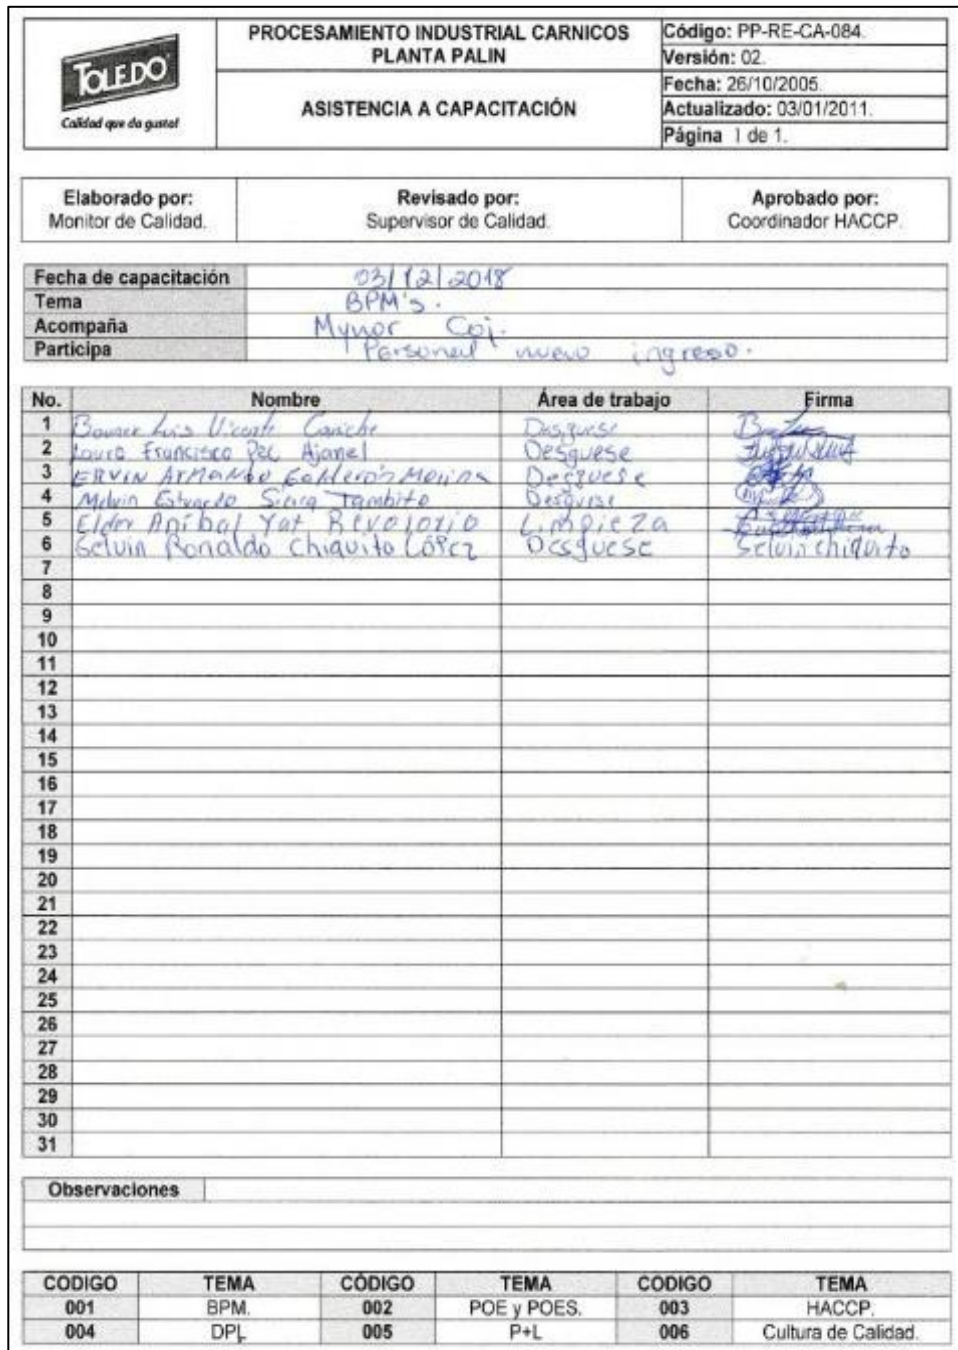 TOLEDO
Calidad que da gusto!
PROCESAMIENTO INDUSTRIAL CARNICOS
PLANTA PALIN
ASISTENCIA A CAPACITACIÓN
Código: PP-RE-CA-084.
Versión: 02.
Fecha: 26/10/2005.
Actualizado: 03/01/2011.
Página 1 de 1.
Elaborado por: Revisado por: Aprobado por:
Monitor de Calidad. Supervisor de Calidad. Coordinador HACCP.
Fecha de capacitación 03/12/2018
Tema BPM's.
Acompaña Mynor Coj.
Participa Personal nuevo ingreso.
No. Nombre Área de trabajo Firma
1 Luis Vicente Desguese
2 Francisco Ajanel Desguese
3 ERVIN ArMaNdo Desguese
4 Melvin Estuardo Tambito Desguese
5 Elder Aníbal Yat Revolorio Limpieza
6 Selvin Ronaldo Chiquito López Desguese Selvin chiquito
7
8
9
10
11
12
13
14
15
16
17
18
19
20
21
22
23
24
25
26
27
28
29
30
31
Observaciones
CODIGO TEMA CÓDIGO TEMA CODIGO TEMA
001 BPM. 002 POE y POES. 003 HACCP.
004 DPL 005 P+L 006 Cultura de Calidad.